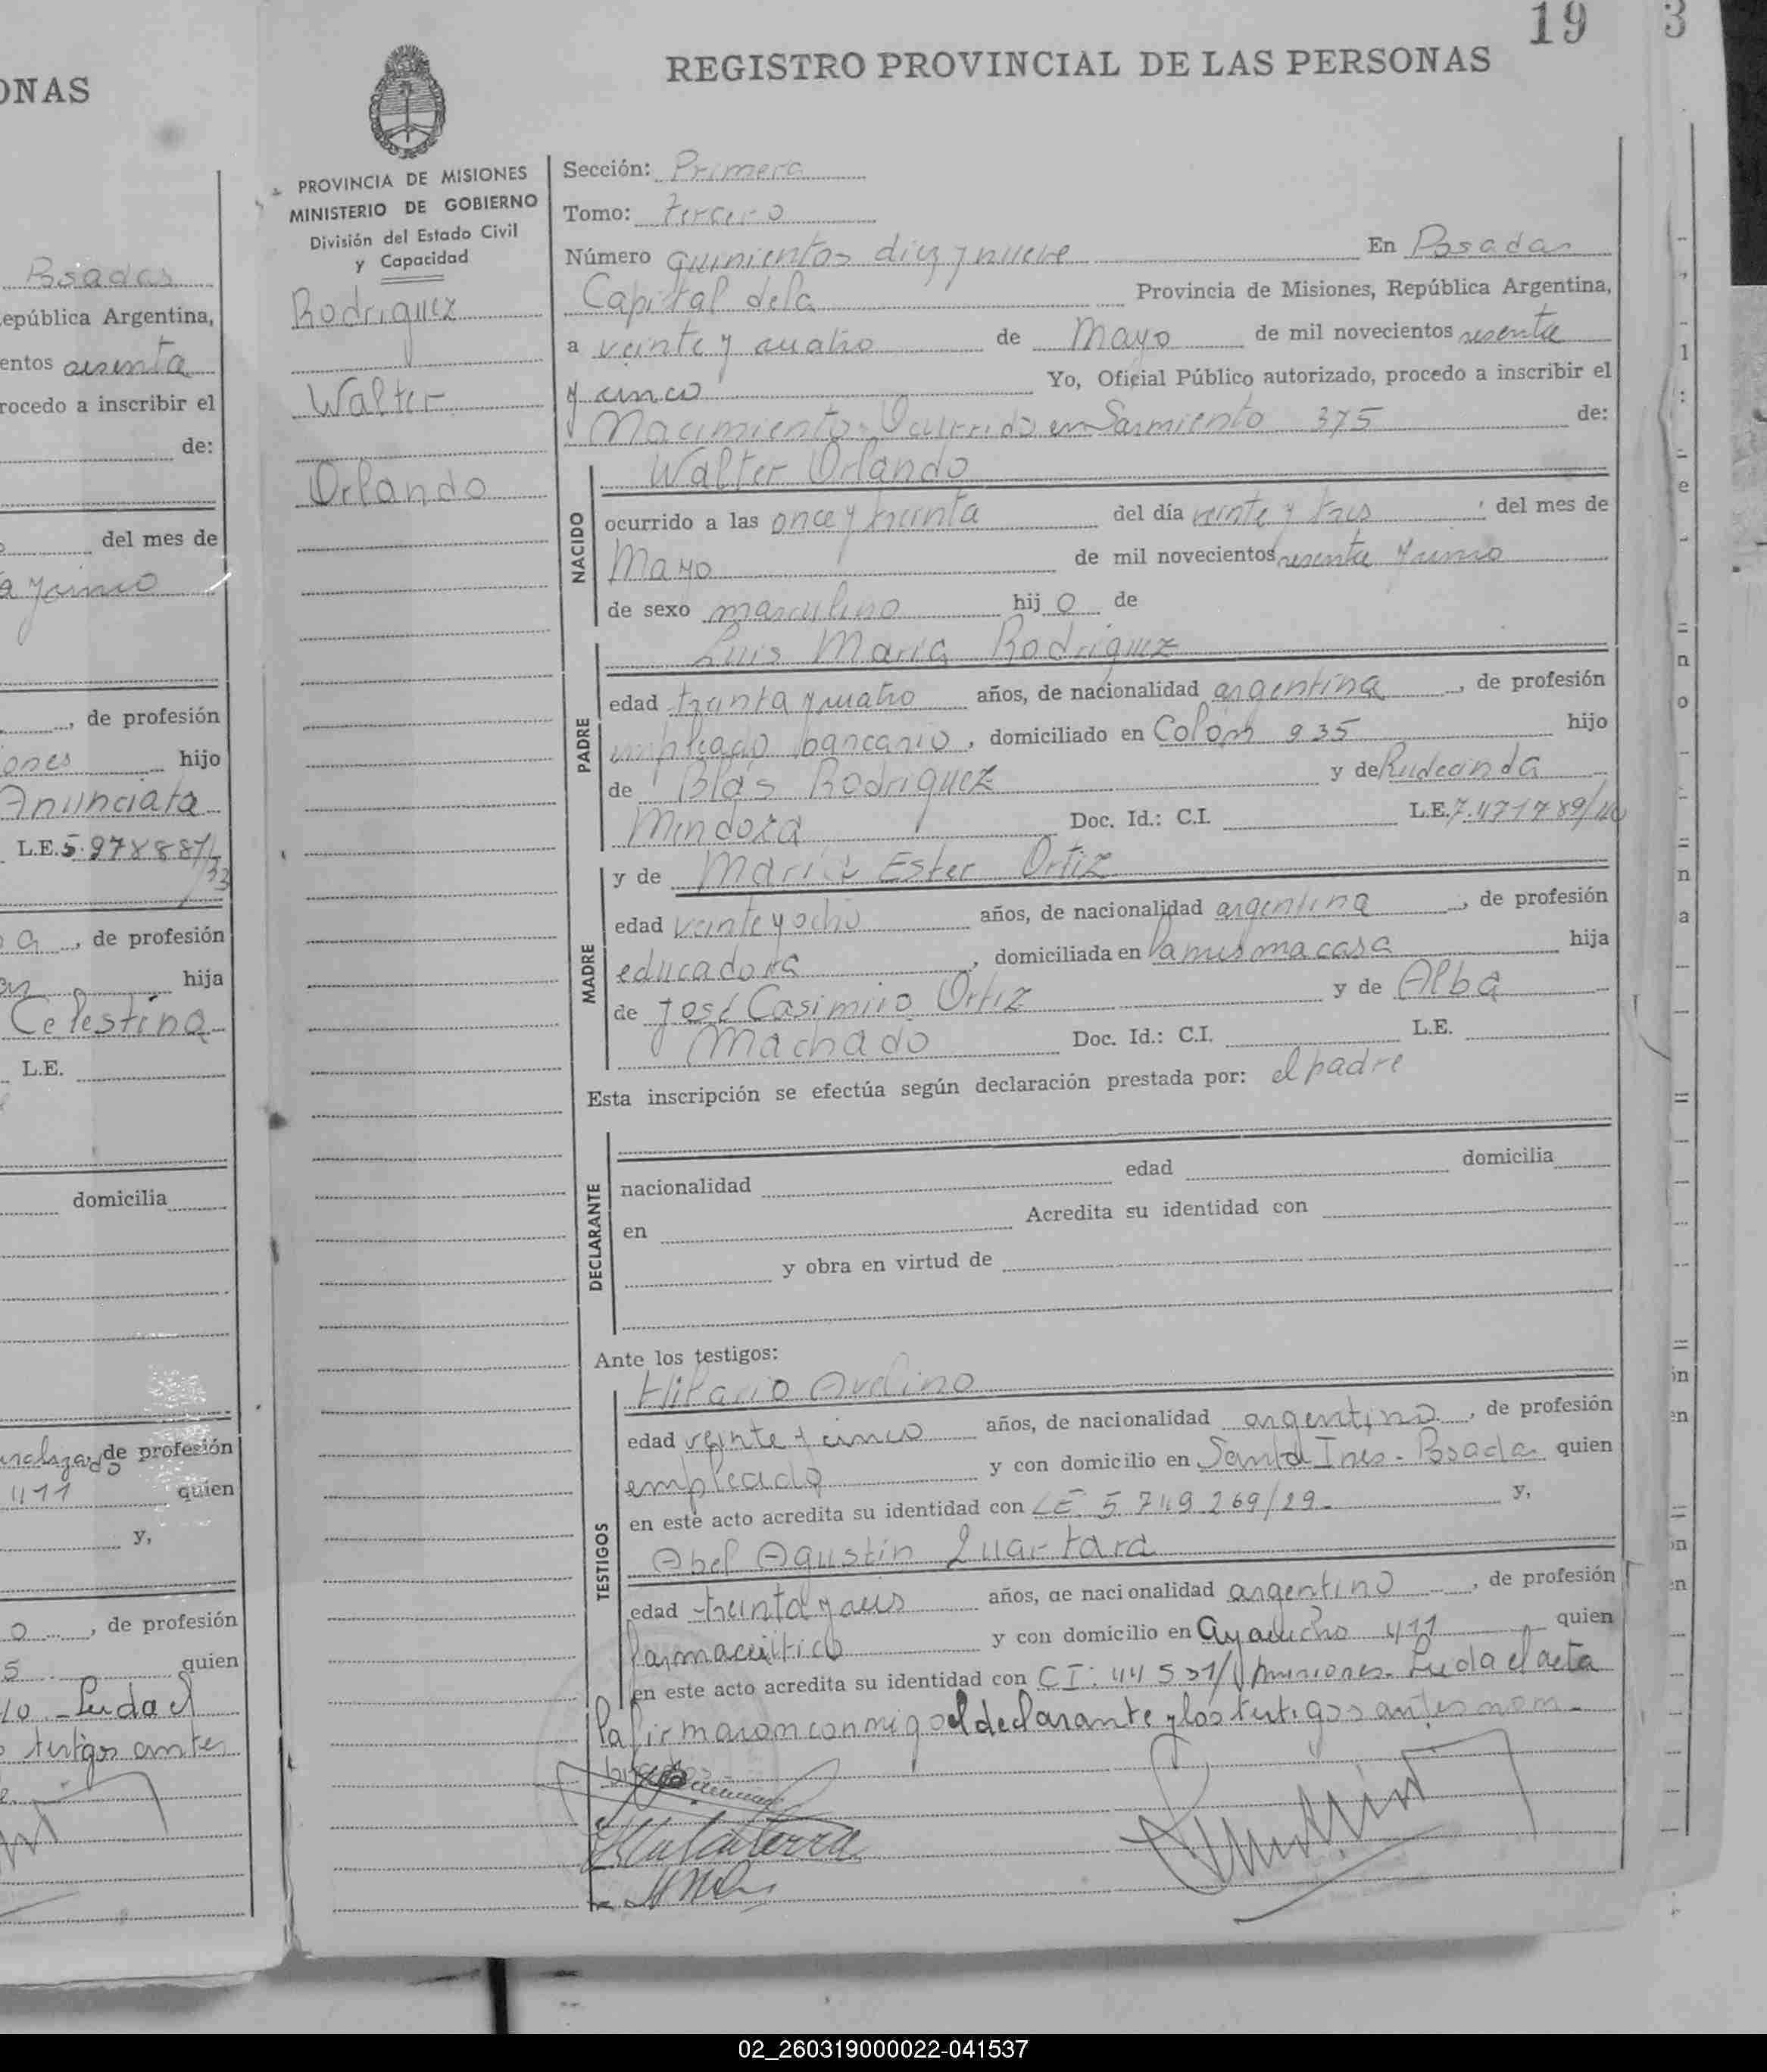 19
3
ONAS
REGISTRO PROVINCIAL DE LAS PERSONAS
PROVINCIA DE MISIONES
MINISTERIO DE GOBIERNO
División del Estado Civil
y Capacidad
Rodriguez
Walter
Orlando
Sección: Primera
Tomo: Tercero
Número quinientos diez y nueve En Posadas
Capital de la Provincia de Misiones, República Argentina,
a veinte y cuatro de Mayo de mil novecientos sesenta
y cinco Yo, Oficial Público autorizado, procedo a inscribir el
Nacimiento Ocurrido en Sarmiento 375 de:
NACIDO
Walter Orlando
ocurrido a las once y treinta del día veinte y tres del mes de
Mayo de mil novecientos sesenta y cinco
de sexo masculino hij o de
PADRE
Luis Maria Rodriguez
edad treinta y cuatro años, de nacionalidad argentina, de profesión
empleado bancario, domiciliado en Colón 935 hijo
de Blás Rodriguez y de Rudecinda
Mendoza Doc. Id.: C.I. L.E. 7.471789/40
y de María Ester Ortiz
MADRE
edad veinte y ocho años, de nacionalidad argentina, de profesión
educadora, domiciliada en la misma casa hija
de José Casimiro Ortiz y de Alba
Machado Doc. Id.: C.I. L.E.
Esta inscripción se efectúa según declaración prestada por: el padre
DECLARANTE
nacionalidad edad domicilia
en Acredita su identidad con
y obra en virtud de
Ante los testigos:
TESTIGOS
Hilario Avelino
edad veinte y cinco años, de nacionalidad argentino, de profesión
empleado y con domicilio en Santa Ines - Posadas quien
en este acto acredita su identidad con LE 5.749.269/29 - y,
Abel Agustín
edad treinta y años, de nacionalidad argentino, de profesión
farmacéutico y con domicilio en Ayacucho 411 quien
en este acto acredita su identidad con CI: 44531/ Misiones. Leida el acta
la firmaron conmigo el declarante y los testigos antes nom-
brados
Posadas
epública Argentina,
entos sesenta
rocedo a inscribir el
de:
del mes de
a y cinco
, de profesión
ones hijo
Anunciata
L.E. 5.978887/
33
a, de profesión
hija
Celestina
L.E.
domicilia
de profesión
411 quien
y,
o, de profesión
5 quien
Leida el
testigos antes
02_260319000022-041537